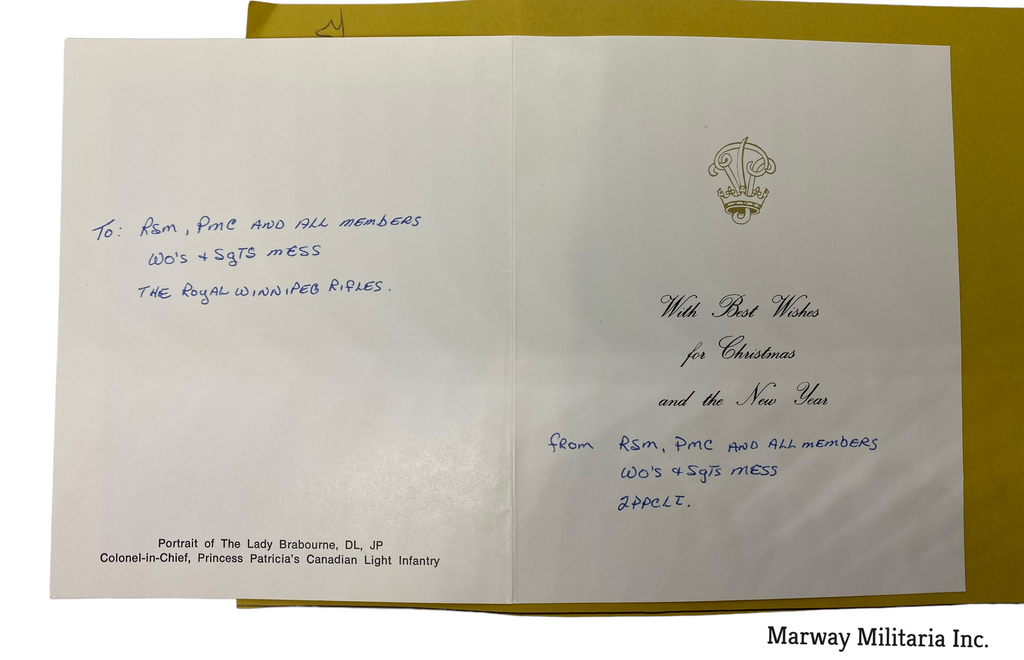 To: RSM, PMC AND ALL MEMBERS
WO's + SgTS MESS
THE ROYAL WINNIPEG RIFLES.
Portrait of The Lady Brabourne, DL, JP
Colonel-in-Chief, Princess Patricia's Canadian Light Infantry
With Best Wishes
for Christmas
and the New Year
from RSM, PMC AND ALL MEMBERS
WO'S + SgTS MESS
2PPCLI.
Marway Militaria Inc.